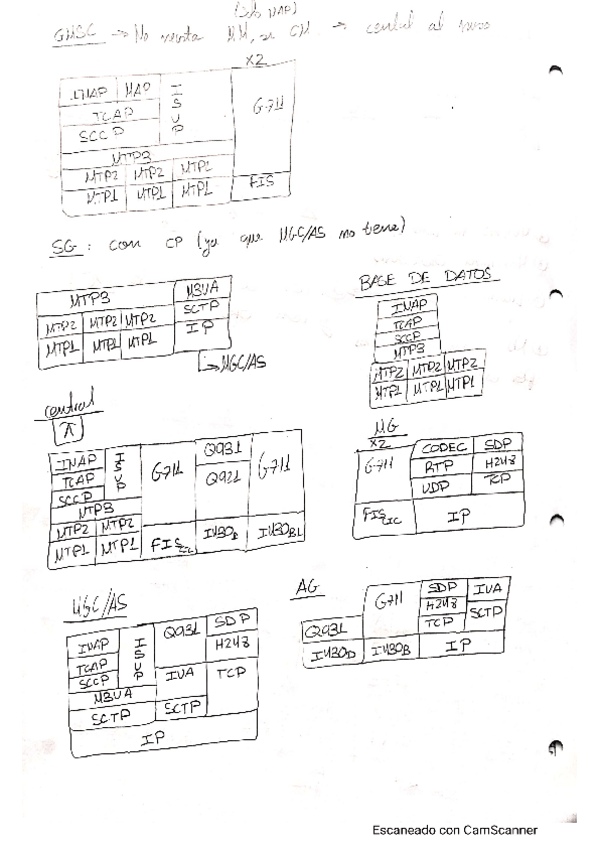 (solo MAP)
GMSC → No MM, si CM → central al
X2
INAP MAP ISUP G-711
TCAP
SCCP
MTP3
MTP2 MTP2 MTP2
MTP1 MTP1 MTP1 FIS
SG: con CP (ya que MGC/AS no tiene)
MTP3 M3UA
SCTP
MTP2 MTP2 MTP2 IP
MTP1 MTP1 MTP1
→ MGC/AS
BASE DE DATOS
INAP
TCAP
SCCP
MTP3
MTP2 MTP2 MTP2
MTP1 MTP1 MTP1
central
A
INAP ISUP G-711 Q931 G-711
TCAP Q921
SCCP
MTP3
MTP2 MTP2
MTP1 MTP1 FIS IC I430D I430B1
MG
X2
G-711 CODEC SDP
RTP H248
UDP TCP
FIS IC IP
MGC/AS
INAP ISUP Q931 SDP
TCAP H248
SCCP IUA TCP
M3UA
SCTP SCTP
IP
AG
G711 SDP IUA
H248 SCTP
Q931 TCP
I430D I430B IP
Escaneado con CamScanner